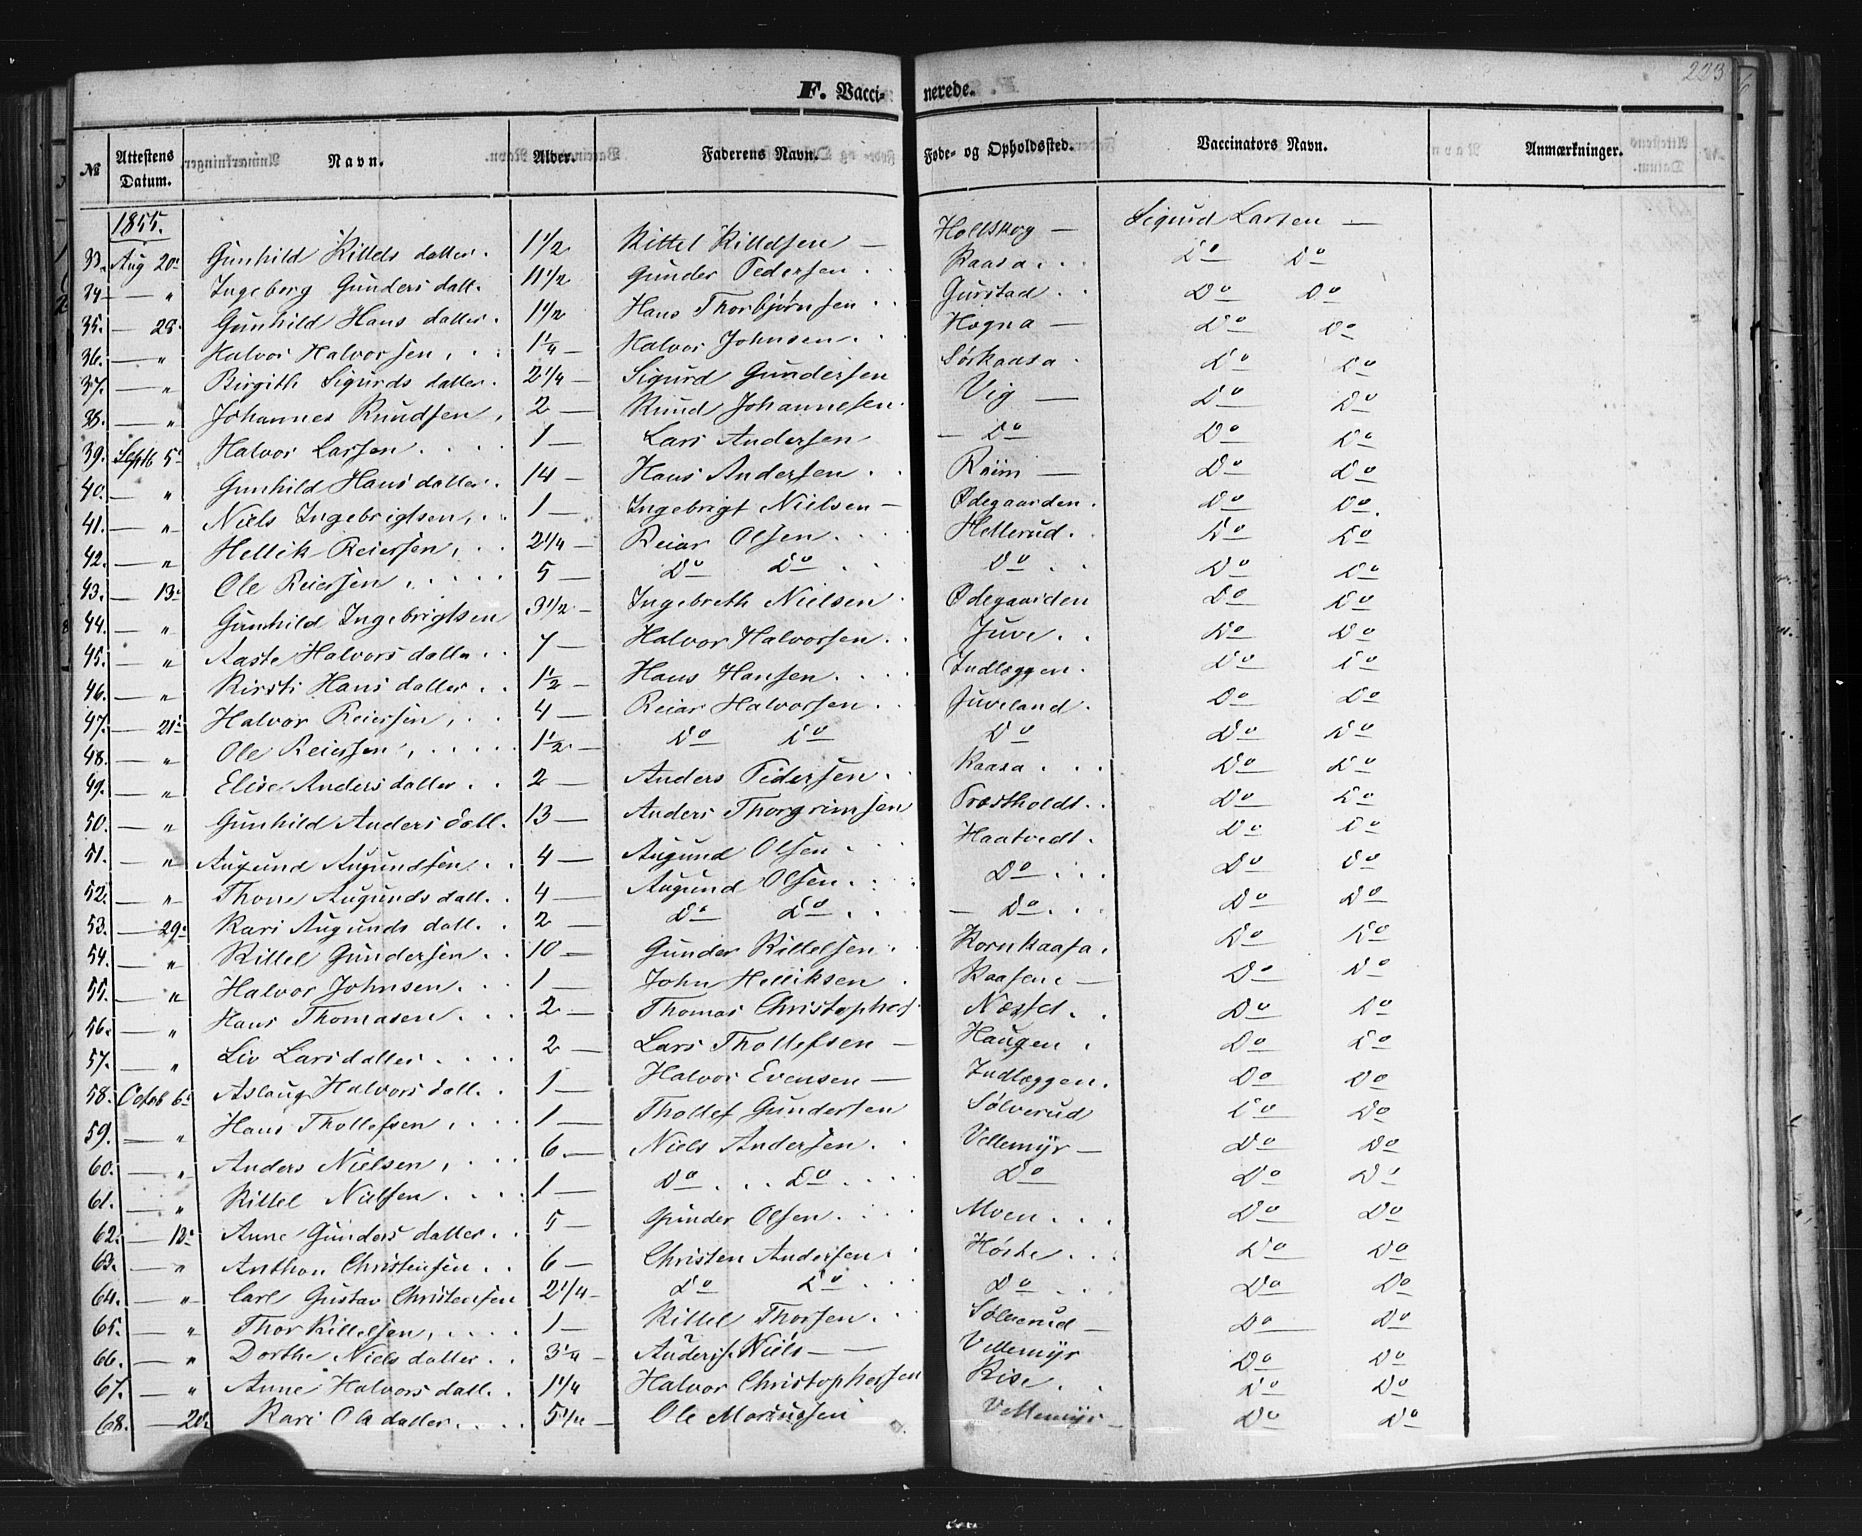 223
F. Vaccinerede.
№ Attestens Datum. Navn. Alder. Faderens Navn. Føde- og Opholdssted. Vaccinators Navn. Anmærkninger.
1855.
33. Aug 20: Gunhild Kittels datter. 1 1/2 Kittel Kittelsen — Holtskog — Sigurd Larsen —
34 — " Ingeborg Gunders datt. 11 1/2 Gunder Pedersen Kaasa Do Do
35. — 28. Gunhild Hans datter. 1 1/2 Hans Thorbjørnsen Gurstad Do Do
36. — " Halvor Halvorsen, 1 1/4 — Halvor Johnsen Hogna — Do Do
37. — " Birgith Sigurds datter. 2 1/4 — Sigurd Gundersen Sørkaasa Do Do
38. — " Johannes Knudsen, 2 — Knud Johannesen Vig — Do Do
39. Septb 5: Halvor Larsen 1 — Lars Andersen — Do Do Do
40. — " Gunhild Hans datter. 14 — Hans Andersen Riim — Do Do
41. — " Niels Ingebrigtsen, 1 — Ingebrigt Nielsen — Ødegaarden. Do Do
42. — " Hellik Reiersen, 2 1/4 — Reiar Olsen Hellerud. Do Do
43. — 13: Ole Reiersen, 5 — Do Do Do Do Do
44. — " Gunhild Ingebrigtsen 3 1/2 — Ingebreth Nielsen Ødegaarden Do Do
45. — " Aaste Halvors datter 7 — Halvor Halvorsen Juve Do Do
46. — " Kirsti Hans datter 1 1/2 — Hans Hansen Indlæggen. Do Do
47. — 21: Halvor Reiersen, 4 — Reiar Halvorsen Juveland. Do Do
48. — " Ole Reiersen, 1 1/2 — Do Do Do Do Do
49. — " Elise Anders datter 2 — Anders Pedersen Kaasa Do Do
50. — " Gunhild Anders datt. 13 — Anders Thorgrimsen Præstholdt. Do Do
51. — " Augund Augundsen 4 — Augund Olsen Haatvedt. Do Do
52. — " Thone Augunds datt. 4 — Augund Olsen Do Do Do
53. — 29: Kari Augunds datt. 2 — Do Do — Do Do Do
54. — " Kittel Gundersen 10 — Gunder Kittelsen Kornkaasa. Do Do
55. — " Halvor Johnsen 1 — John Helliksen Kaasene — Do Do
56. — " Hans Thomasen 2 — Thomas Christophers Næsset Do Do
57. — " Liv Lars datter 2 — Lars Thollefsen — Haugen Do Do
58. — Octob 6: Aslaug Halvors datt. 1 — Halvor Evensen — Indlæggen. Do Do
59. — " Hans Thollefsen 1 — Thollef Gundersen Sølverud Do Do
60. — " Anders Nielsen, 6. — Niels Andersen Vellemyr — Do Do
61. — " Kittel Nielsen 1 — Do Do Do Do Do
62. — 13: Anne Gunders datter 5 — Gunder Olsen Moen Do Do
63. — " Anthon Christensen 6 — Christen Andersen Do Do
64. — " Carl Gustav Christensen 2 1/4 — Do Do Do Do Do
65. — " Thor Kittelsen, 1 — Kittel Thorsen Sølverud — Do Do
66. — " Dorthe Niels datter 3 1/4 — Anders Niels — — Vellemyr Do Do
67. — " Anne Halvors datt. 1 1/4 Halvor Christophersen Rise Do Do
68. — 20: Kari Ola datter 5 1/4 — Ole Vellemyr — Do Do